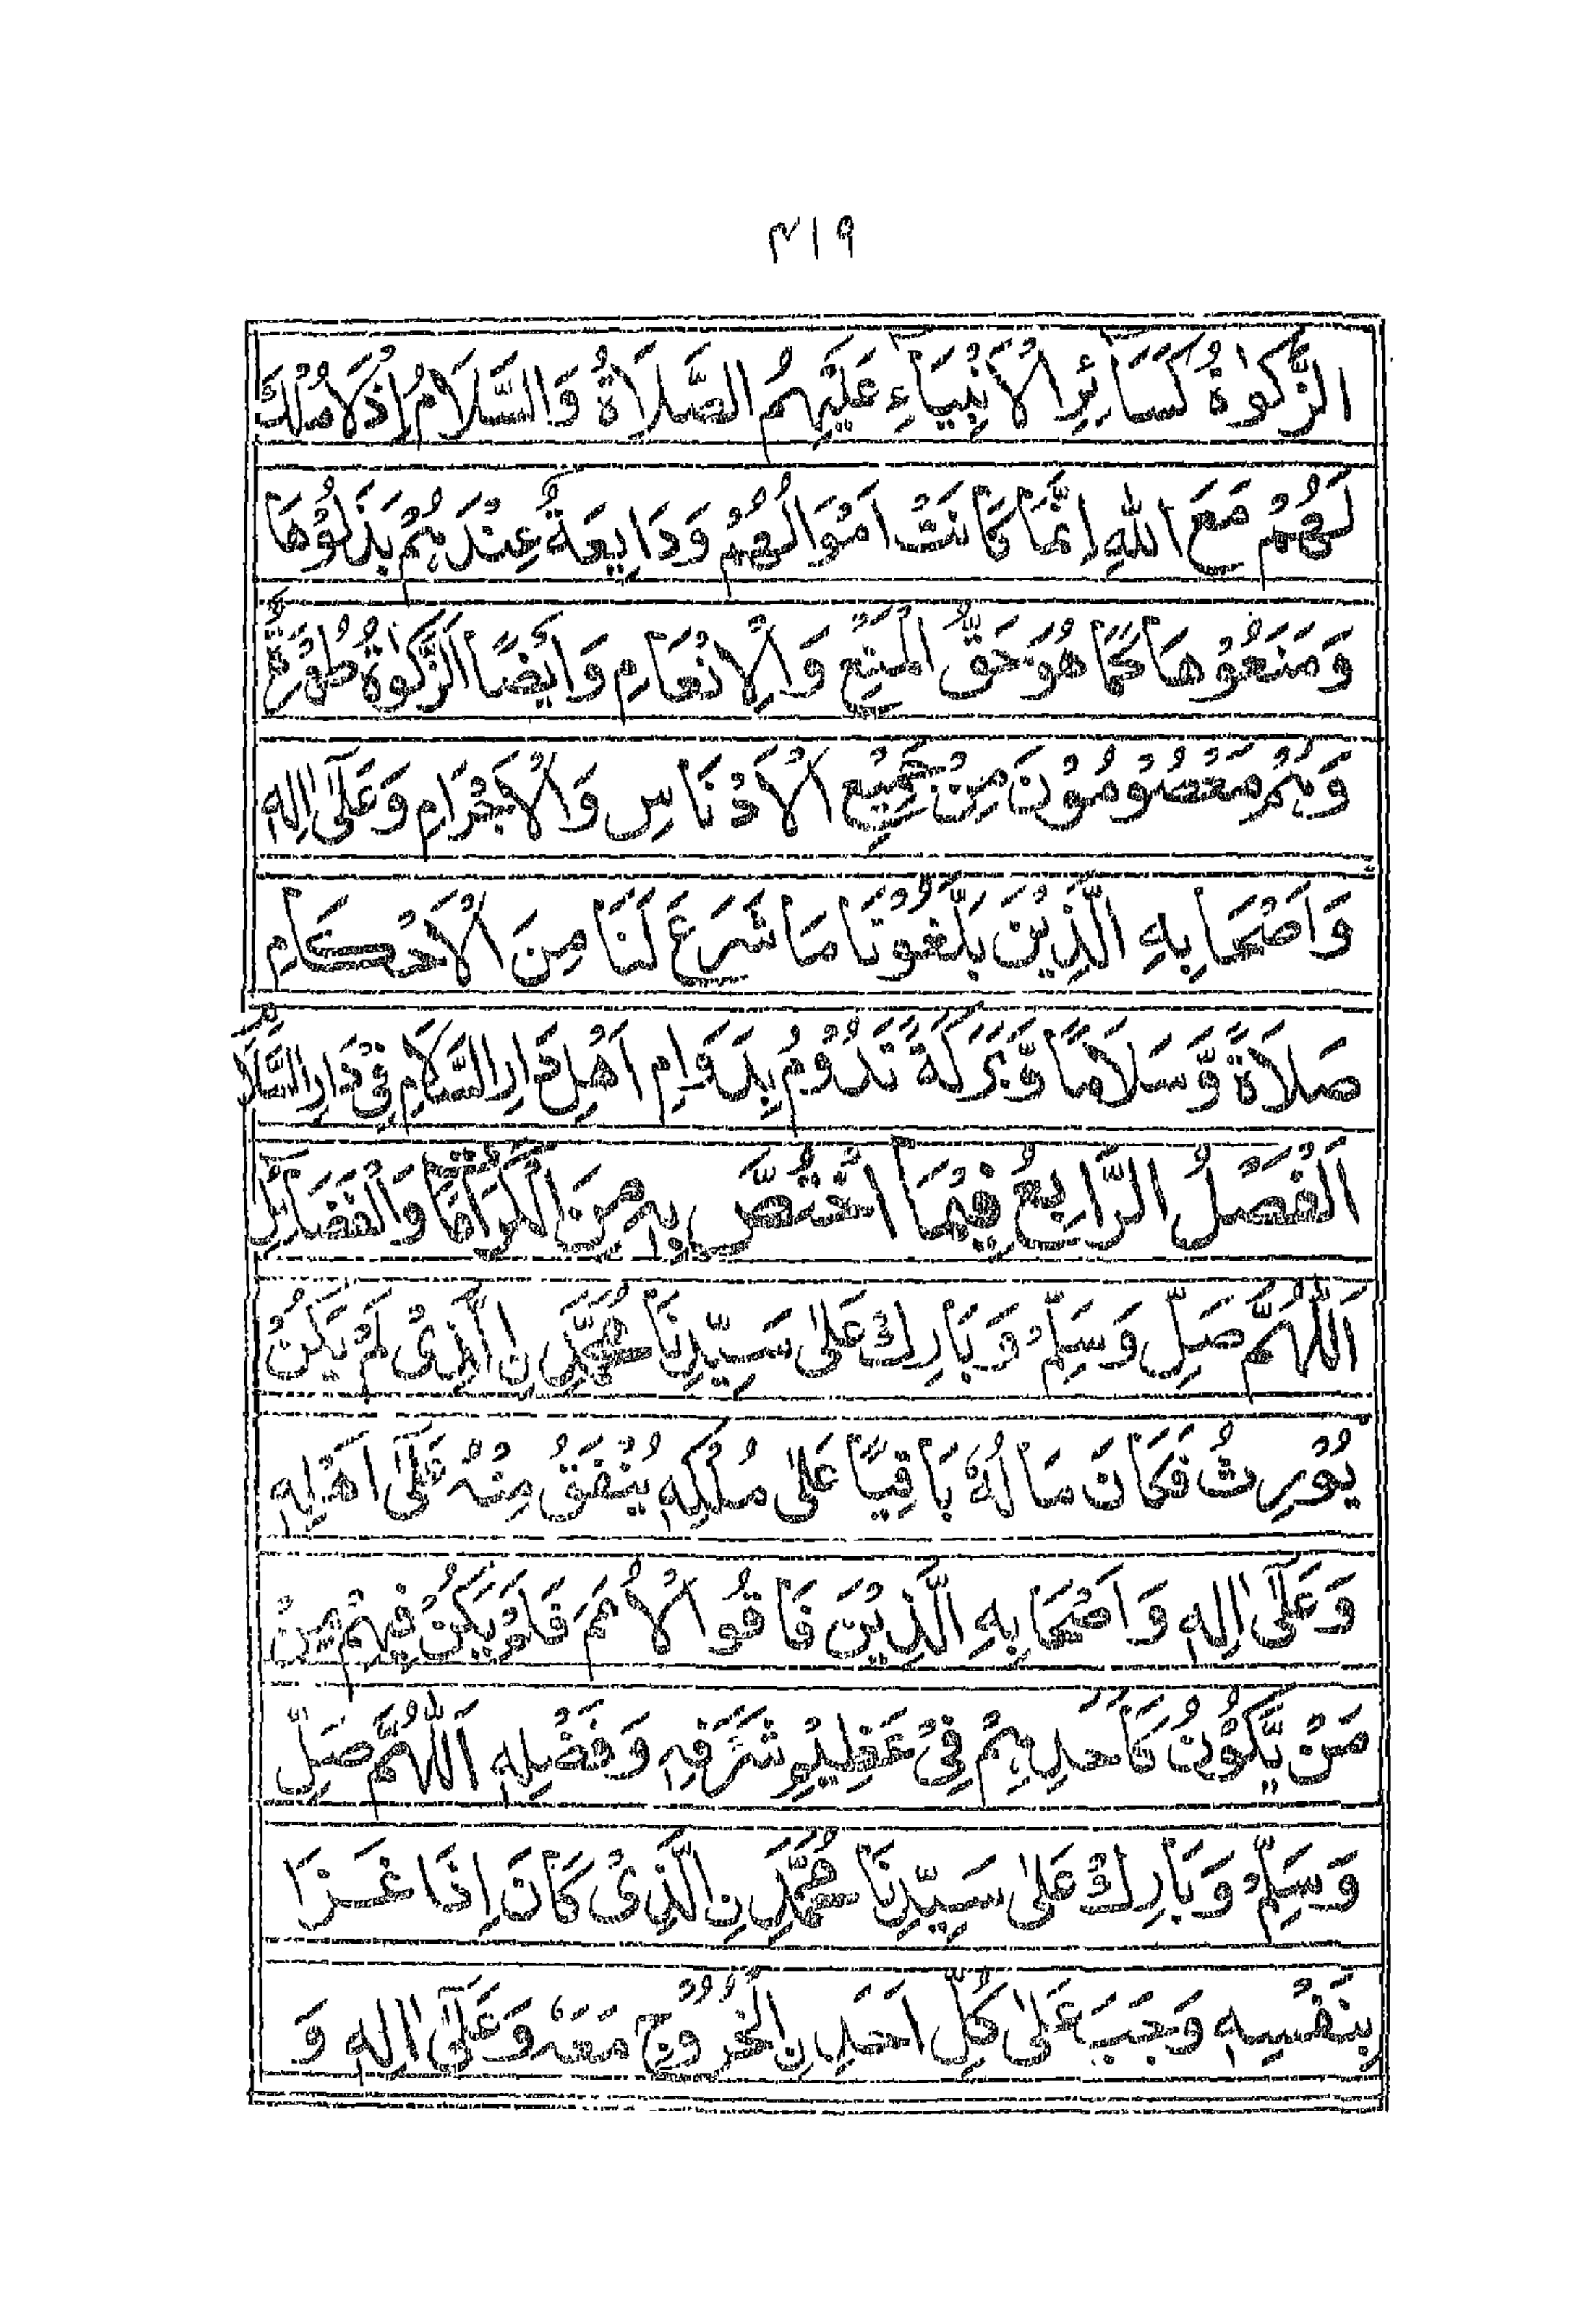 ٣١٩
الزَّكٰوةُ كَسَآئِرِ الْاَنْبِيَآءِ عَلَيْهِمُ الصَّلَاةُ وَالسَّلَامُ اِذْ لَا مُلْكَ
لَهُمْ مَعَ اللّٰهِ اِنَّمَا كَانَتْ اَمْوَالُهُمْ وَدَايِعَةٌ عِنْدَهُمْ بَذَلُوْهَا
وَمَنَعُوْهَا كَمَا هُوَ حَقُّ الْمَنْعِ وَالْاِنْعَامِ وَاَيْضًا الزَّكٰوةُ طُهْرَةٌ
وَهُمْ مَعْصُوْمُوْنَ مِنْ جَمِيْعِ الْاَدْنَاسِ وَالْاَجْرَامِ وَعَلٰٓى اٰلِهٖ
وَاَصْحَابِهِ الَّذِيْنَ بَلَّغُوْنَا مَا شَرَعَ لَنَا مِنَ الْاَحْكَامِ
صَلَاةً وَّسَلَامًا وَّبَرَكَةً تَدُوْمُ بِدَوَامِ اَهْلِ دَارِ السَّلَامِ فِىْ دَارِ السَّلَامِ
اَلْفَصْلُ الرَّابِعُ فِيْمَا اخْتُصَّ بِهٖ مِنَ الْكَرَامَاتِ وَالْفَضَآئِلِ
اَللّٰهُمَّ صَلِّ وَسَلِّمْ وَبَارِكْ عَلٰى سَيِّدِنَا مُحَمَّدِنِ الَّذِىْ لَمْ يَكُنْ
يُوْرِثُ فَكَانَ مَالُهٗ بَاقِيًا عَلٰى مُلْكِهٖ يُنْفَقُ مِنْهُ عَلٰٓى اَهْلِهٖ
وَعَلٰٓى اٰلِهٖ وَاَصْحَابِهِ الَّذِيْنَ فَاقُوا الْاُمَمَ فَلَمْ يَكُنْ فِيْهِمْ مِنْ
مَنْ يَّكُوْنُ كَاَحَدِهِمْ فِىْ عَظِيْمِ شَرَفِهٖ وَفَضْلِهٖ اَللّٰهُمَّ صَلِّ
وَسَلِّمْ وَبَارِكْ عَلٰى سَيِّدِنَا مُحَمَّدِنِ الَّذِىْ كَانَ اِذَا غَزَا
بِنَفْسِهٖ وَجَبَ عَلٰى كُلِّ اَحَدِنِ الْخُرُوْجُ مَعَهٗ وَعَلٰٓى اٰلِهٖ وَ